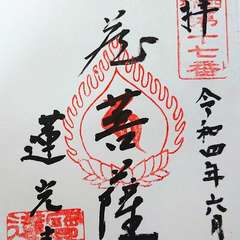 第十七番
拝
令和四年六月
蔵菩薩
蓮光寺